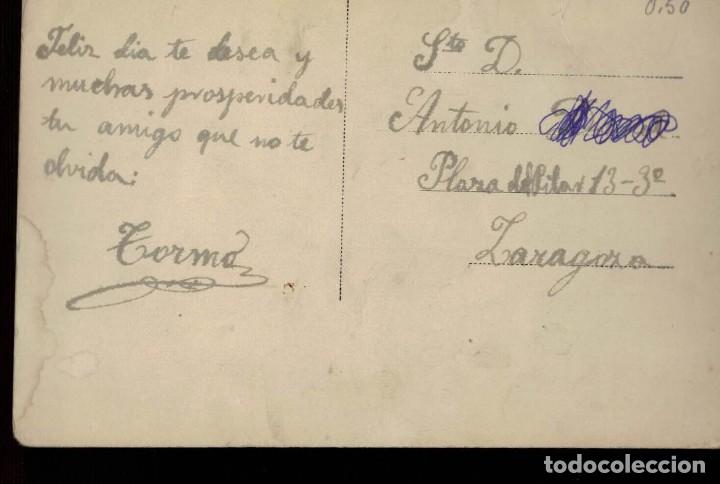 0.50
Feliz dia te desea y
muchas prosperidades
tu amigo que no te
olvida:
Tormo
Sto D.
Antonio
Plaza del Pilar 13-3º
Zaragoza
todocoleccion